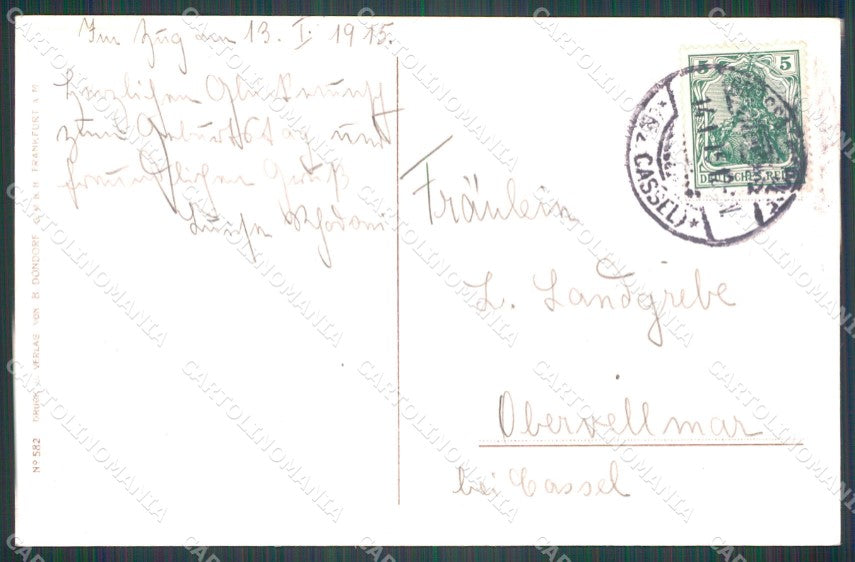 Im Zug den 13. I. 1915.
Herzlichen Glückwunsch
zum Geburtstag und
freundlichen Gruß
Fräulein
L. Landgrebe
Obervellmar
bei Cassel
5 5
DEUTSCHES REICH
(BZ. CASSEL)
No 582 DRUCK U. VERLAG VON B. DONDORF G.M.B.H. FRANKFURT A/M
CARTOLINOMANIA